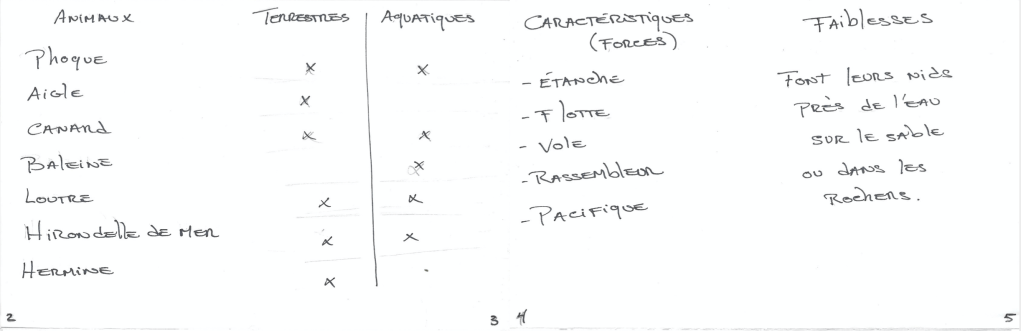 ANIMAUX TERRESTRES AQUATIQUES
Phoque x x
Aigle x
CANARd x x
BAleiNE x
LOUTRE x x
HiRONdelle de MER x x
HERMiNE x
2 3
CARACTÉRiSTiques
(FORCES)
- ÉTANche
- FlOTTE
- VOlE
- RASSEMBleUR
- PACiFique
4
FAiblESSES
FONT lEURS Nids
PRÈS de l'EAU
SUR lE SAblE
OU dANS lES
ROchERS.
5